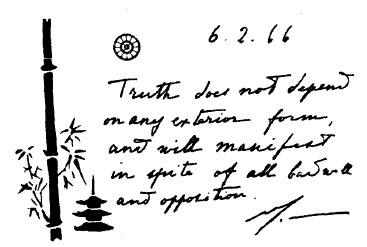 6.2.66
Truth does not depend
on any exterior form,
and will manifest
in spite of all bad will
and opposition.